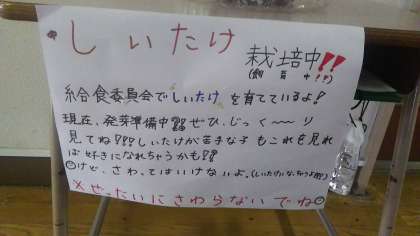 しいたけ
栽培中!!
(飼育中!?)
給食委員会でしいたけを育てているよ!
現在、発芽準備中!!ぜひ、じっく〜〜り
見てね!!!しいたけが苦手な子もこれを見れ
ば好きになれちゃうかも!!
けど、さわってはいけないよ。
※ぜったいにさわらないでね